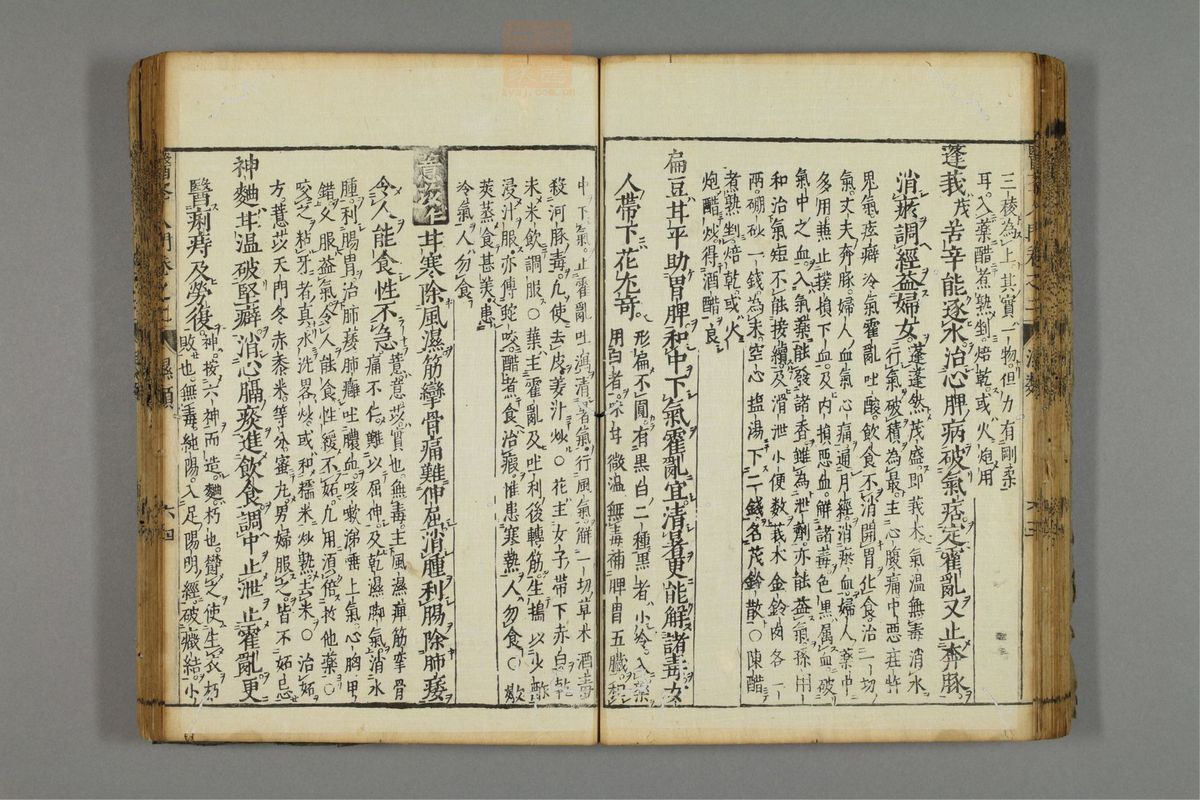 三棱為上其實一物但力有剛柔
耳入藥醋煮熟剉焙乾或火炮用
蓬莪茂苦辛能逐水治心脾病破氣痃定霍亂又止奔豚
消瘀調經益婦女
蓬蓬然茂盛即莪木氣溫無毒消水
行氣破積為最主心腹痛中惡疰忤
鬼氣痃癖冷氣霍亂吐酸飲食不消開胃化食治一切
氣丈夫奔豚婦人血氣心痛通月經消瘀血婦人藥中
多用兼止撲損下血及內損惡血解諸毒色黑屬血破
氣中之血入氣藥能發諸香雖為泄劑亦能益氣孫用
和治氣短不能接續及滑泄小便數莪木金鈴肉各一
兩硼砂一錢為末空心塩湯下二錢名茂鈴散○陳醋
煮熟剉焙乾或火
炮醋炒得酒醋良
扁豆甘平助胃脾和中下氣霍亂宜清暑更能解諸毒女
人帶下花尤奇
形扁不圓有黑白二種黑者小冷入藥
用白者味甘微溫無毒補脾胃五臟和
中下氣止霍亂吐瀉清暑氣行風氣解一切草木酒毒
殺河豚毒凢使去皮姜汁炒○花主女子帶下赤白乾
末米飲調服○葉主霍亂及吐利後轉筋生搗以少酢
浸汁服亦傅蛇咬醋煮食治瘕惟患寒熱人勿食○歘
莢蒸食甚美患
冷氣人勿食
薏苡仁甘寒除風濕筋攣骨痛難伸屈消腫利腸除肺痿
令人能食性不急
薏薏苡實也無毒主風濕痺筋攣骨
痛不仁難以屈伸及乾濕脚氣消水
腫利腸胃治肺痿肺癰吐膿血咳嗽涕唾上氣心胸甲
錯久服益氣令人能食性緩不妬凢用須倍於他藥○
咬之粘牙者真水洗畧炒或和糯米炒熟去米○治妬
方薏苡天門冬赤黍米等分蜜丸男婦服之皆不妬忌
神麯甘溫破堅癖消心膈痰進飲食調中止泄止霍亂更
醫痢痔及勞復
神按六神而造麯朽也欝之使生衣朽
敗也無毒純陽入足陽明經破癥結小